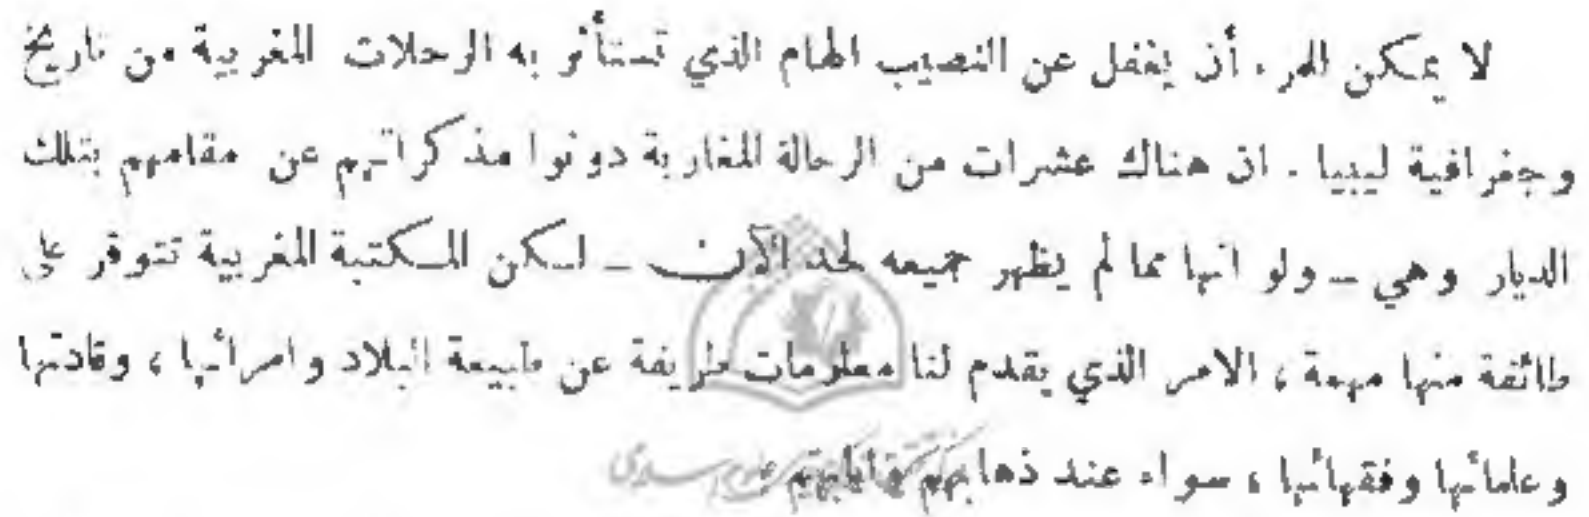 لا يمكن للمرء أن يغفل عن النصيب الهام الذي تستأثر به الرحلات المغربية من تاريخ
وجغرافية ليبيا . ان هناك عشرات من الرحالة المغاربة دونوا مذكراتهم عن مقامهم بتلك
الديار وهي – ولو انها مما لم يظهر جميعه لحد الآن – لكن المكتبة المغربية تتوفر على
طائفة منها مهمة ، الامر الذي يقدم لنا معلومات طريفة عن طبيعة البلاد وامرائها ، وقادتها
وعلمائها وفقهائها ، سواء عند ذهابهم